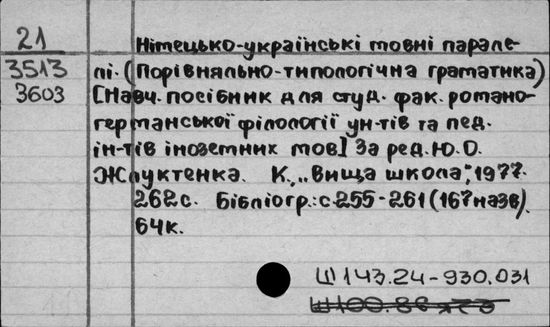 21
3513
3603
Німецько-українські мовні парале-
лі. (Порівняльно-типологічна граматика)
[Навч. посібник для студ. фак. романо-
германської філології ун-тів та пед.
ін-тів іноземних мов] За ред. Ю.О.
Жлуктенка. К., „Вища школа", 1977.
262 с. Бібліогр.: с 255-261 (167 назв).
64 к.
Ш143.24-930.031